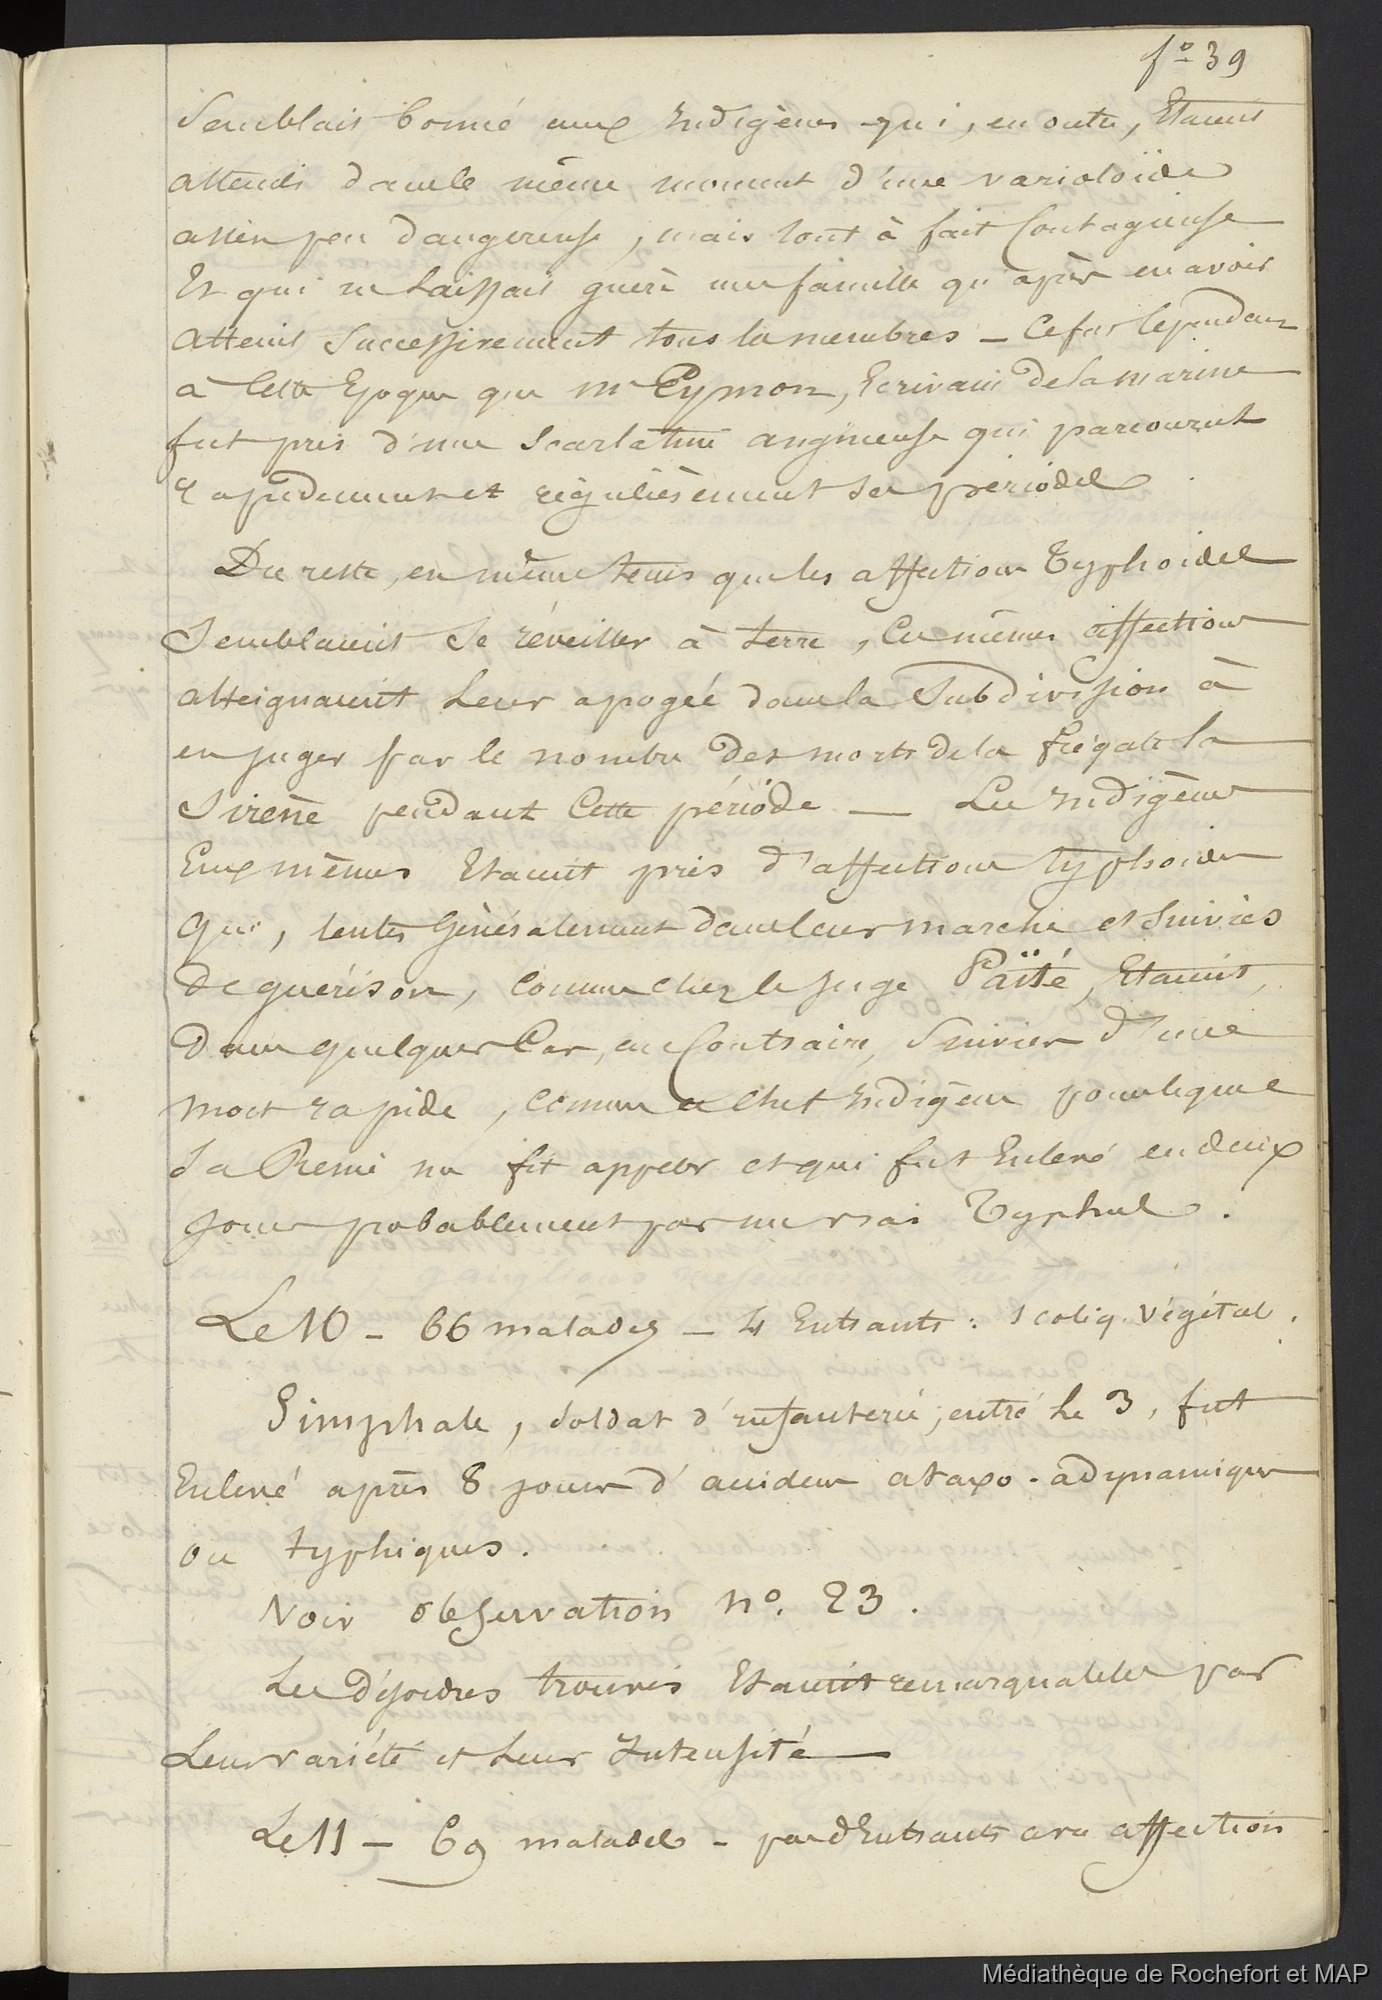 fº 39
Semblait borné aux Indigènes qui, en outre, Etaient
atteints dans le même moment d'une varioloïde
assez peu dangereuse, mais tout à fait Contagieuse
Et qui ne Laissait guère une famille qu'après en avoir
Atteint Successivement tous les membres — Ce fut Cependant
à Cette Epoque que Mr Eymon, Ecrivain de la marine
fut pris d'une Scarlatine angineuse qui parcourut
rapidement et régulièrement ses périodes
Du reste, en même tems que les affections Typhoides
Semblaient Se réveiller à terre, Ces mêmes affections
atteignaient Leur apogée dans la Subdivision à
en juger par le nombre des morts de la frégate la
Sirène pendant Cette période — Les Indigènes
Eux mêmes Etaient pris d'affections typhoides
Qui, lentes Généralement dans leur marche et Suivies
de guérison, Comme chez le juge Païté, Etaient,
dans quelques Cas, au Contraire, Suivies d'une
mort rapide, comme ce chef Indigène pour lequel
la Reine me fit appeler et qui fut Enlevé en deux
Jours probablement par un vrai Typhus.
Le 10 — 66 malades — 4 Entrants : 1 coliq. végétal.
Simphale, Soldat d'infanterie, entré Le 3, fut
Enlevé après 8 jours d'accidens ataxo-adynamiques
ou typhiques.
Voir observation nº. 23.
Les désordres trouvés Etaient remarquables par
Leur variété et Leur Intensité —
Le 11 — 69 malades — pas d'Entrants avec affection
Médiathèque de Rochefort et MAP